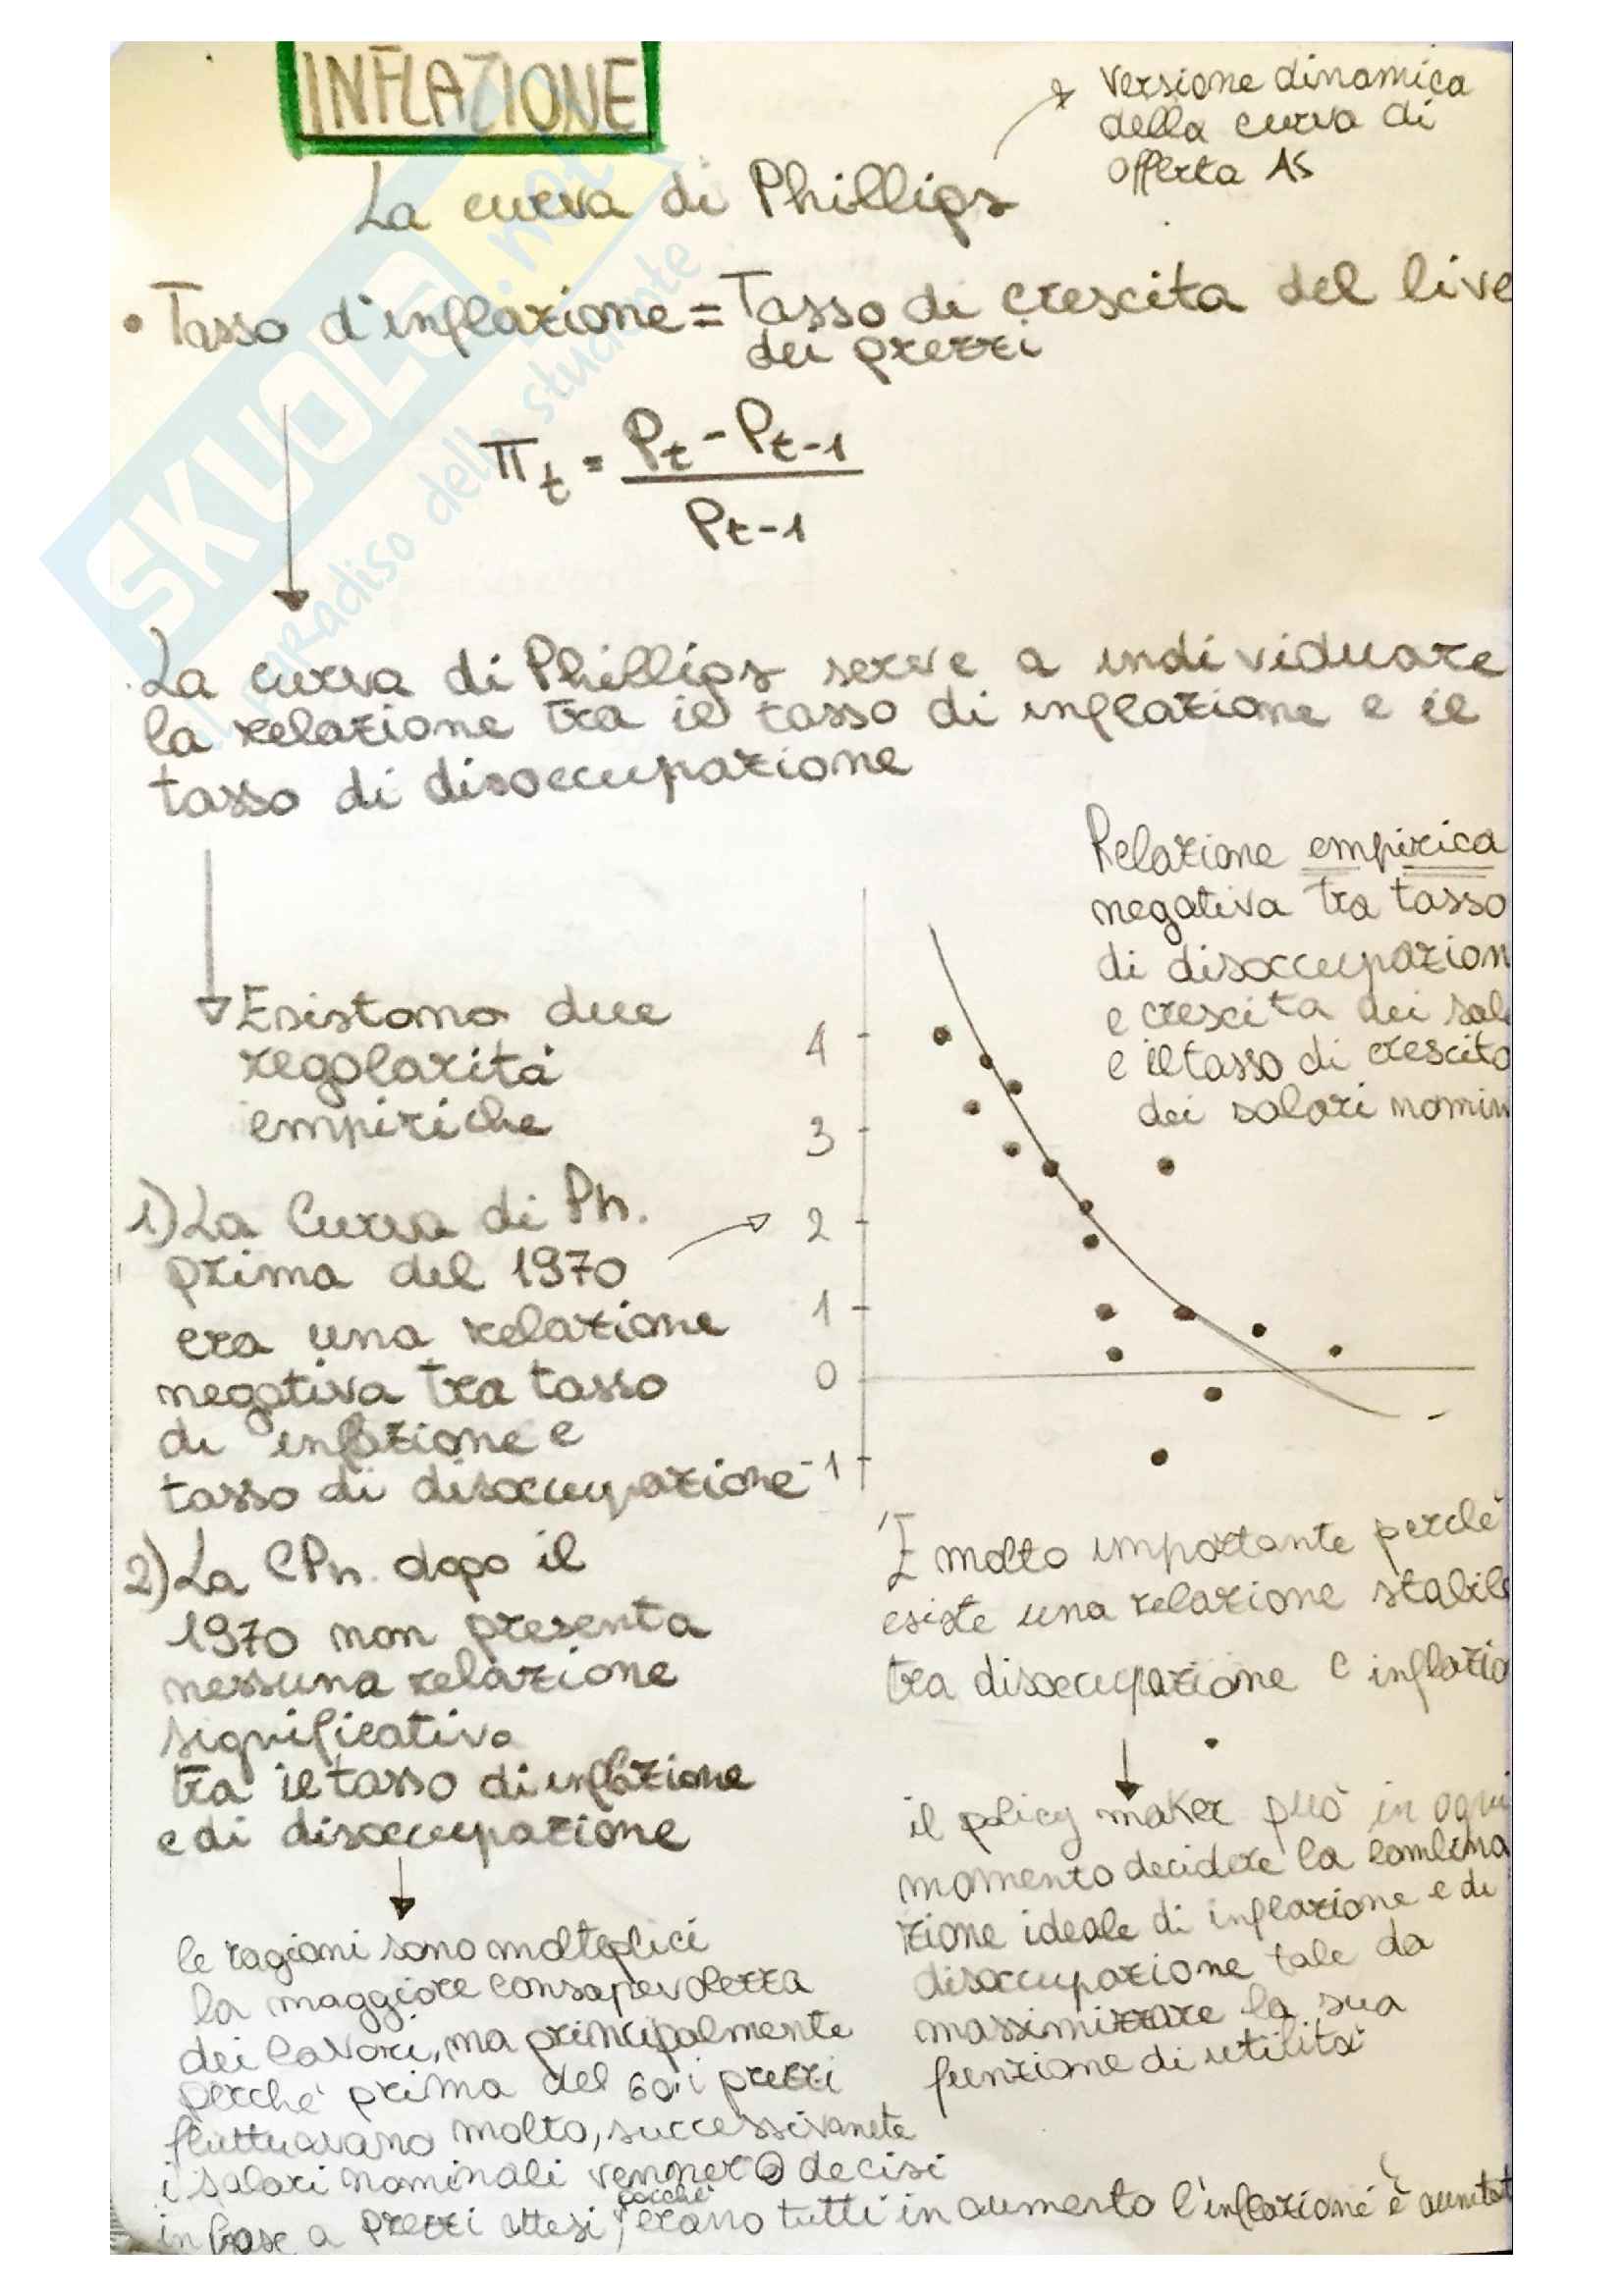 INFLAZIONE
versione dinamica
della curva di
offerta AS
La curva di Phillips
• Tasso d'inflazione = Tasso di crescita del live
dei prezzi
πt = Pt - Pt-1
Pt-1
La curva di Phillips serve a individuare
la relazione tra il tasso di inflazione e il
tasso di disoccupazione
Esistono due
regolarità
empiriche
1) La Curva di Ph.
prima del 1970
era una relazione
negativa tra tasso
di inflazione e
tasso di disoccupazione
Relazione empirica
negativa tra tasso
di disoccupazion
e crescita dei sal
e il tasso di crescita
dei salari nomin
4
3
2
1
0
-1
2) La CPh. dopo il
1970 non presenta
nessuna relazione
significativa
tra il tasso di inflazione
e di disoccupazione
le ragioni sono molteplici
la maggiore consapevolezza
dei lavori, ma principalmente
perché prima del 60, i prezzi
fluttuavano molto, successivanete
i salari nominali vennero decisi
in base a prezzi attesi, poiché erano tutti in aumento l'inflazione è aumetat
É molto importante perchè
esiste una relazione stabile
tra disoccupazione e inflazio
il policy maker può in ogni
momento decidere la combina
zione ideale di inflazione e di
disoccupazione tale da
massimizzare la sua
funzione di utilità
SKUOLA.net
il paradiso dello studente